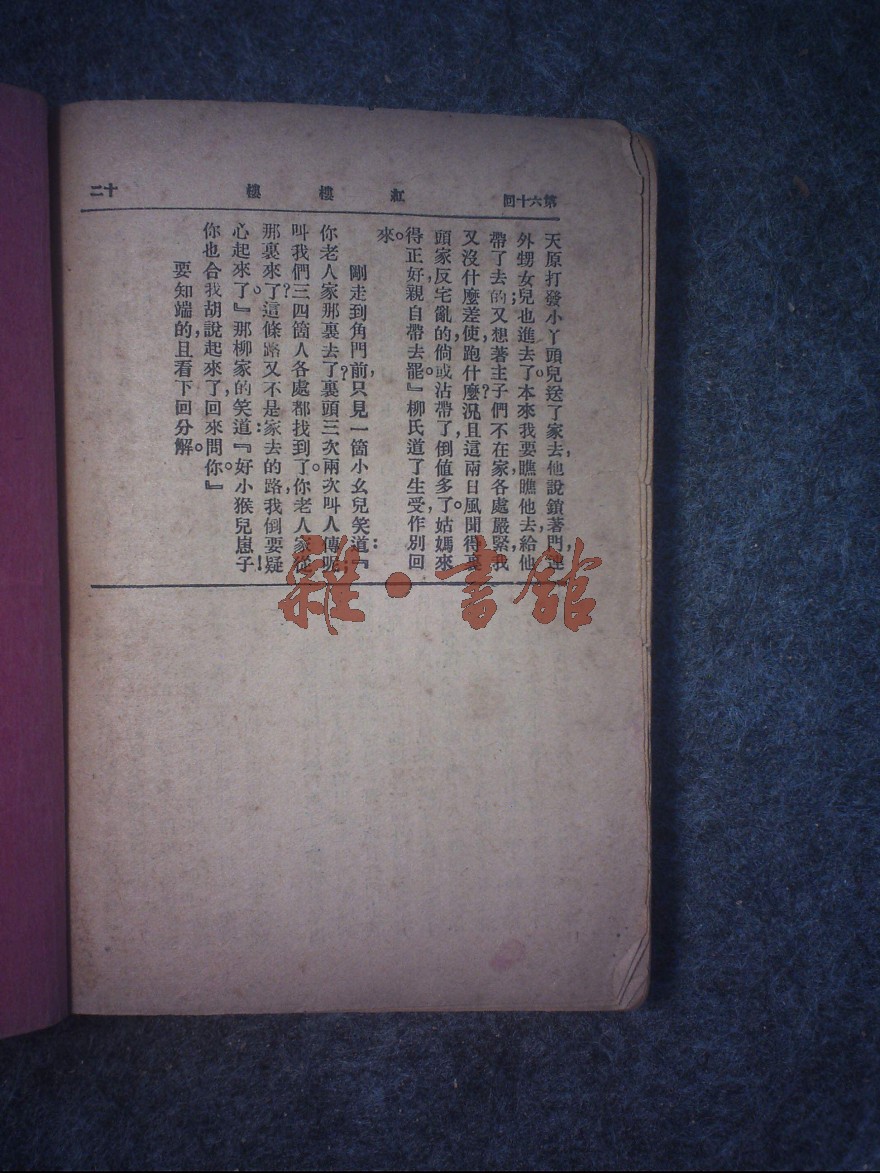 第六十回
紅樓樓
十二
天原打發小丫頭兒送了家去,他說鎖著門,連
外甥女兒也進去了。本來我要瞧瞧他去,給他
帶了去的;又想著主子們不在家,各處嚴緊,我
又沒什麼差使,跑什麼?況且這兩日風聞得裏
頭家反宅亂的,倘或沾帶了,倒値多了。姑媽來
得正好,親自帶去罷。』柳氏道了生受,作別回
來。
剛走到角門前,只見一箇小幺兒笑道:『
你老人家那裏去了?裏頭三次兩次叫人傳呢;
叫我們三四箇人各處都找到了。你老人家從
那裏來了?這條路又不是家去的路,我倒要疑
心起來了。』那柳家的笑道:『好小猴兒崽子!
你也合我胡說起來了,回來問你。』
要知端的,且看下回分解。
雜·書館